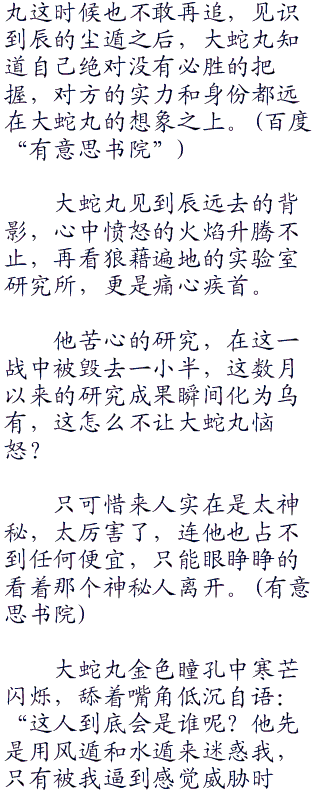 丸这时候也不敢再追，见识
到辰的尘遁之后，大蛇丸知
道自己绝对没有必胜的把
握，对方的实力和身份都远
在大蛇丸的想象之上。(百度
“有意思书院”)
大蛇丸见到辰远去的背
影，心中愤怒的火焰升腾不
止，再看狼藉遍地的实验室
研究所，更是痛心疾首。
他苦心的研究，在这一
战中被毁去一小半，这数月
以来的研究成果瞬间化为乌
有，这怎么不让大蛇丸恼
怒？
只可惜来人实在是太神
秘，太厉害了，连他也占不
到任何便宜，只能眼睁睁的
看着那个神秘人离开。(有意
思书院)
大蛇丸金色瞳孔中寒芒
闪烁，舔着嘴角低沉自语：
“这人到底会是谁呢？他先
是用风遁和水遁来迷惑我，
只有被我逼到感觉威胁时